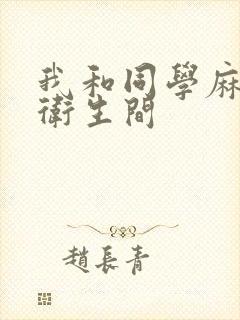 我和同學麻
衛生間
趙長青